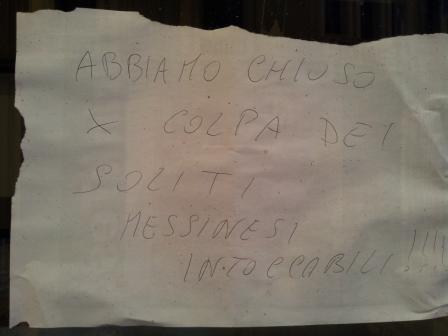 ABBIAMO CHIUSO
X COLPA DEI
SOLITI
MESSINESI
INTOCCABILI!!!!